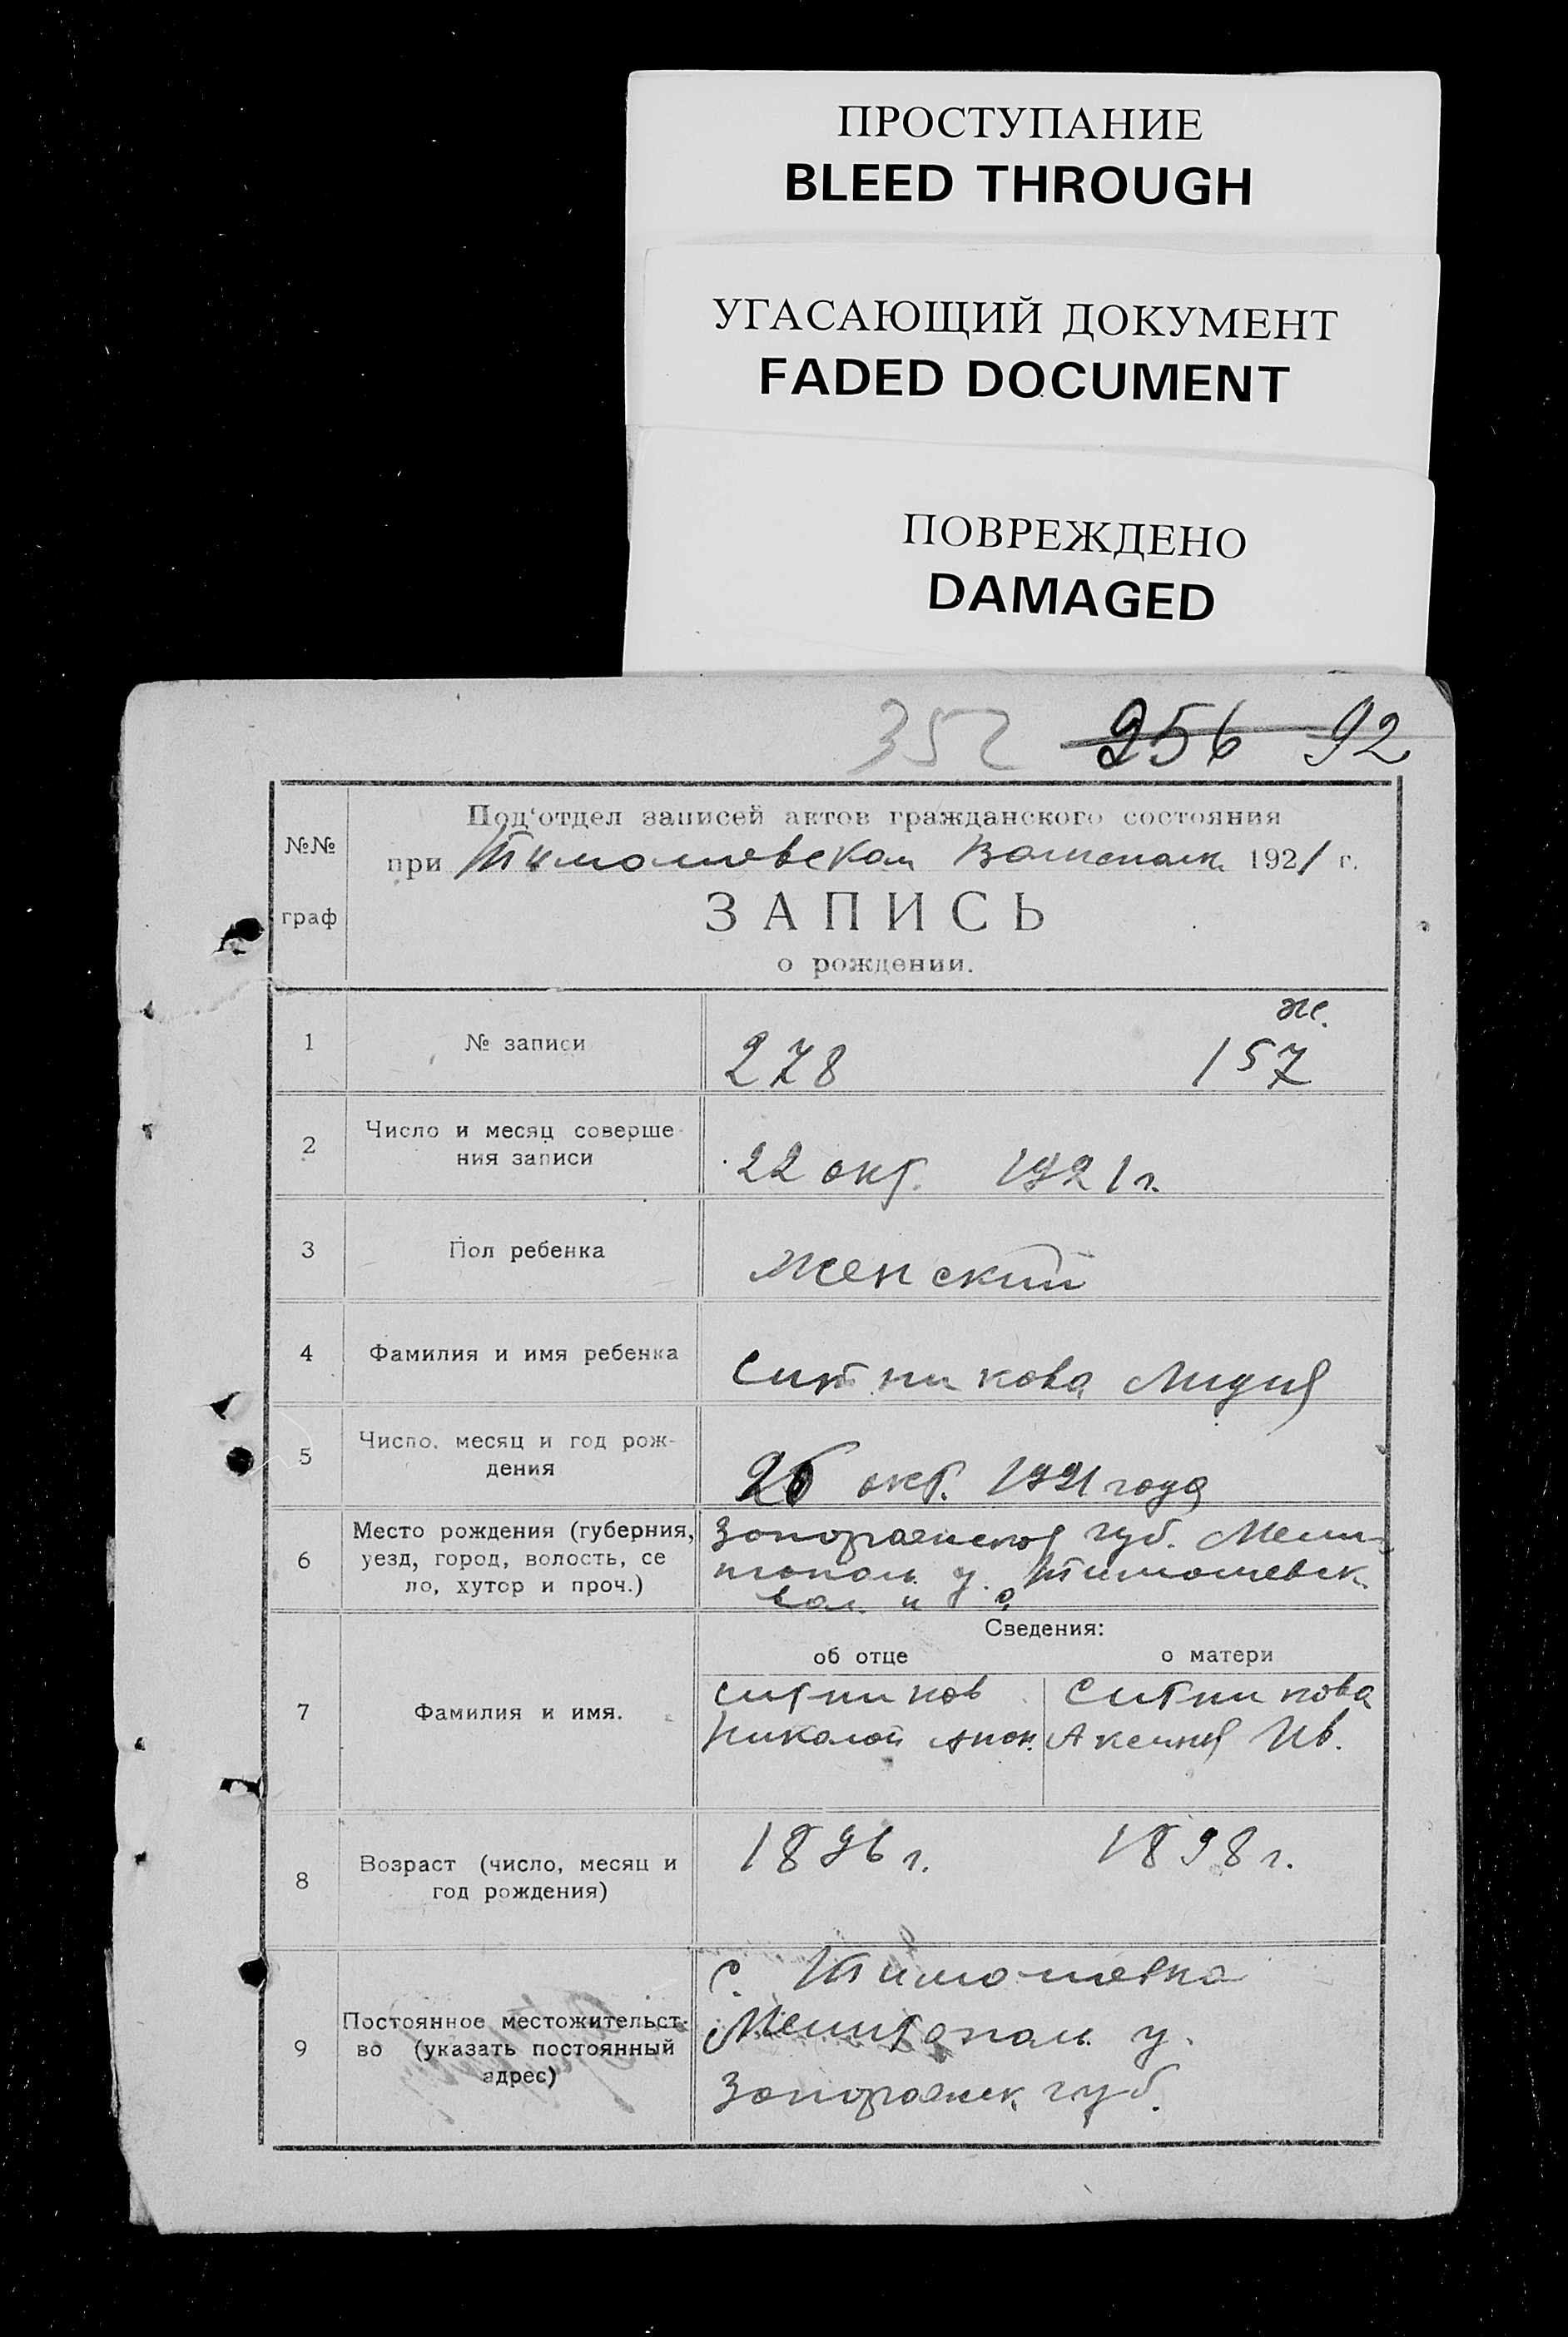 ПРОСТУПАНИЕ
BLEED THROUGH
УГАСАЮЩИЙ ДОКУМЕНТ
FADED DOCUMENT
ПОВРЕЖДЕНО
DAMAGED
352 256 92
№№ граф
Под'отдел записей актов гражданского состояния
при Тимошевском Волисполк. 1921 г.
ЗАПИСЬ
о рождении.
ж.
1 № записи 278 157
2 Число и месяц соверше-
ния записи 22 окт. 1921 г.
3 Пол ребенка женский
4 Фамилия и имя ребенка Ситникова Лидия
5 Число, месяц и год рож-
дения окт. 1921 года
6 Место рождения (губерния, Запорожской губ. Мели-
уезд, город, волость, се топол. у. Тимошевск.
ло, хутор и проч.) вол. и с.
Сведения:
об отце о матери
7 Фамилия и имя. Ситников Ситникова
Николай Аксиния Ив.
8 Возраст (число, месяц и 1896 г. 1898 г.
год рождения)
с. Тимошевка
9 Постоянное местожительст-
во (указать постоянный Мелитопол. у.
адрес) Запорожск. губ.